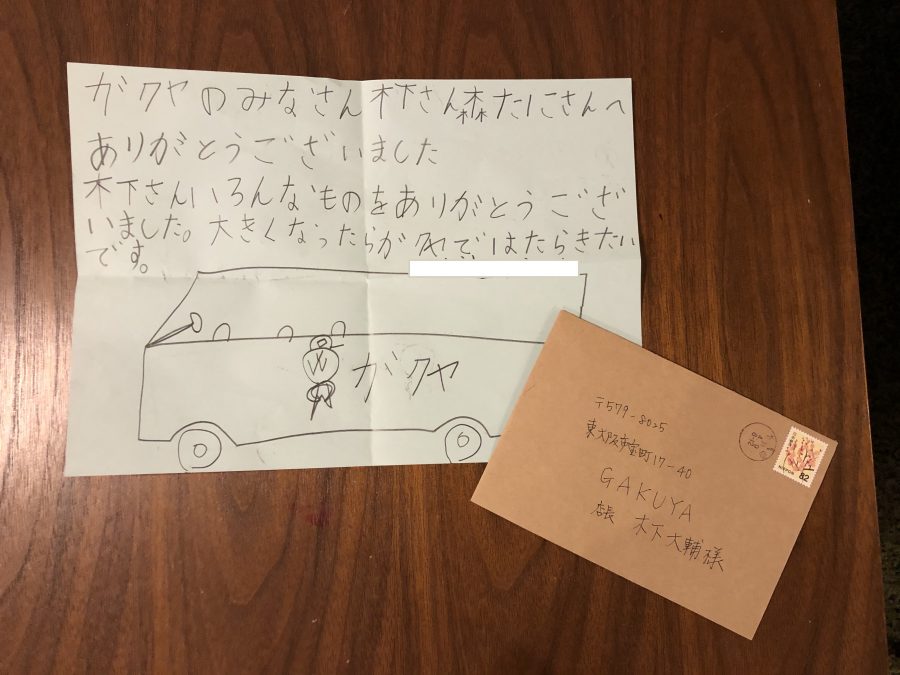 ガクヤのみなさん木下さん森たにさんへ
ありがとうございました
木下さんいろんなものをありがとうござ
いました。大きくなったらがクヤではたらきたい
です。
W
ガクヤ
〒579-8025
東大阪市宝町17-40
GAKUYA
店長 木下大輔様
NIPPON
82